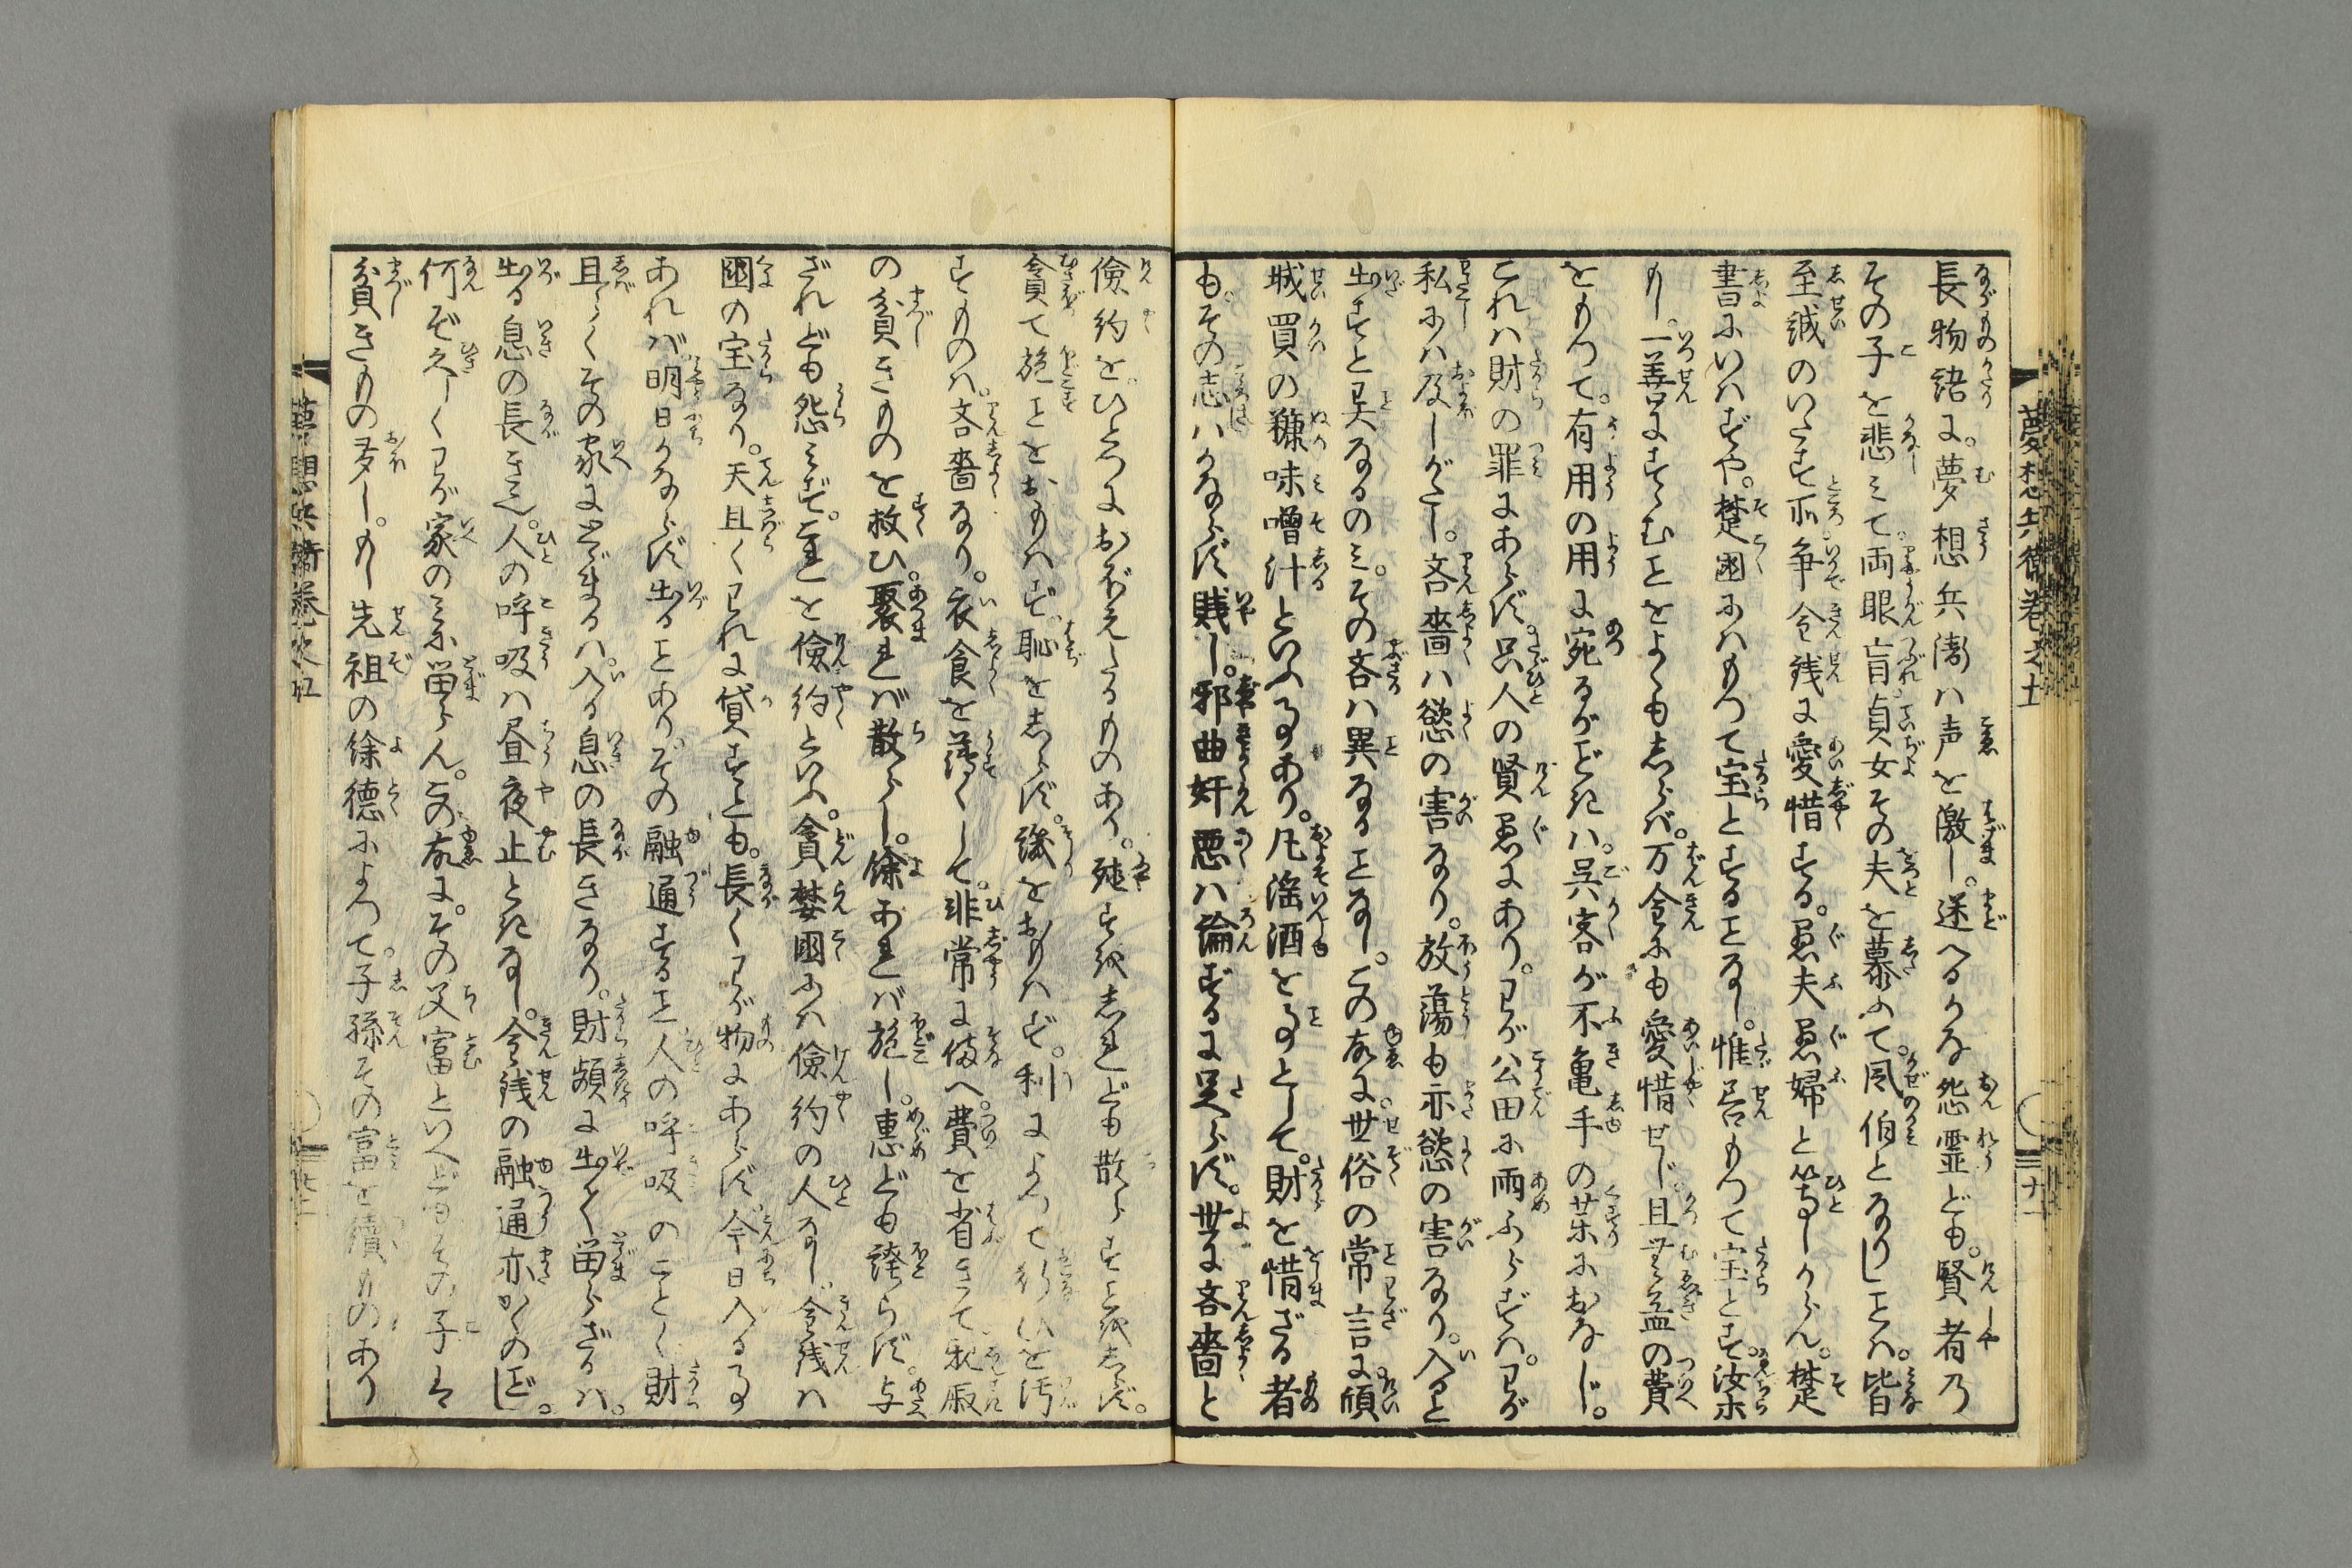 長物語に。夢想兵衛ハ声を激し。迷へるかな怨霊ども。賢者乃
その子を悲ミて。両眼盲。貞女その夫を慕ふて。風伯となりしヿハ。皆
至誠のいたす所。争金銭に愛惜する。愚夫愚婦と等しからん。楚
書にいハずや。楚國にハもつて宝とするヿなし。惟善もつて宝とす。汝們
もし。一善にすゝむヿをよくもしらバ。万金にも愛惜せじ。且無益の費
をもつて。有用の用に宛るがどきハ。呉客が不亀手の薬におなじ。
これハ財の罪にあらず。只人の賢愚にあり。わが公田に雨ふらずハ。わが
私にハ及しがたし。吝嗇ハ慾の害なり。放蕩も亦慾の害なり。入ると
出すと異なるのミ。その吝ハ異なるヿなし。この故に。世俗の常言に傾
城買の糠味噌汁といふ事あり。凡淫酒をことゝして。財を惜ざる者
も。その志ハかならず賤し。邪曲奸悪ハ論ずるに足らず。世に吝嗇と
儉約を。ひとつにおぼえたるものあり。殖すを
しれども散らすをしらず。
貪て施ヿをおもハず。恥をしらず。譏をおもハず。利によつて行ひを汚
すものハ。吝嗇なり。衣食を薄くして。非常に備へ。費を省きて親戚
の貧きものを救ひ。聚れバ散らし。餘あれバ施し。惠ども誇らず。与
ざれども怨ミず。これを儉約といふ。貪婪國にハ儉約の人なし。金銭ハ
國の宝なり。天且くわれに貸すとも。長くわが物にあらず。今日入る事
あれバ明日かならず出るヿあり。その融通するヿ人の呼吸のことく財
且らくその家にとゞまるハ。入る息の長きなり。財頻に出て留らざるハ。
出る息の長き也。人の呼吸ハ昼夜止ときなし。金銭の融通亦かくのごとし。
何ぞ久しくわが家のミに留らん。この故に。その父富といへどもその子は
貧きもの多し。もし先祖の餘德によつて。子孫その富を續ものあり
夢想兵衛巻之五